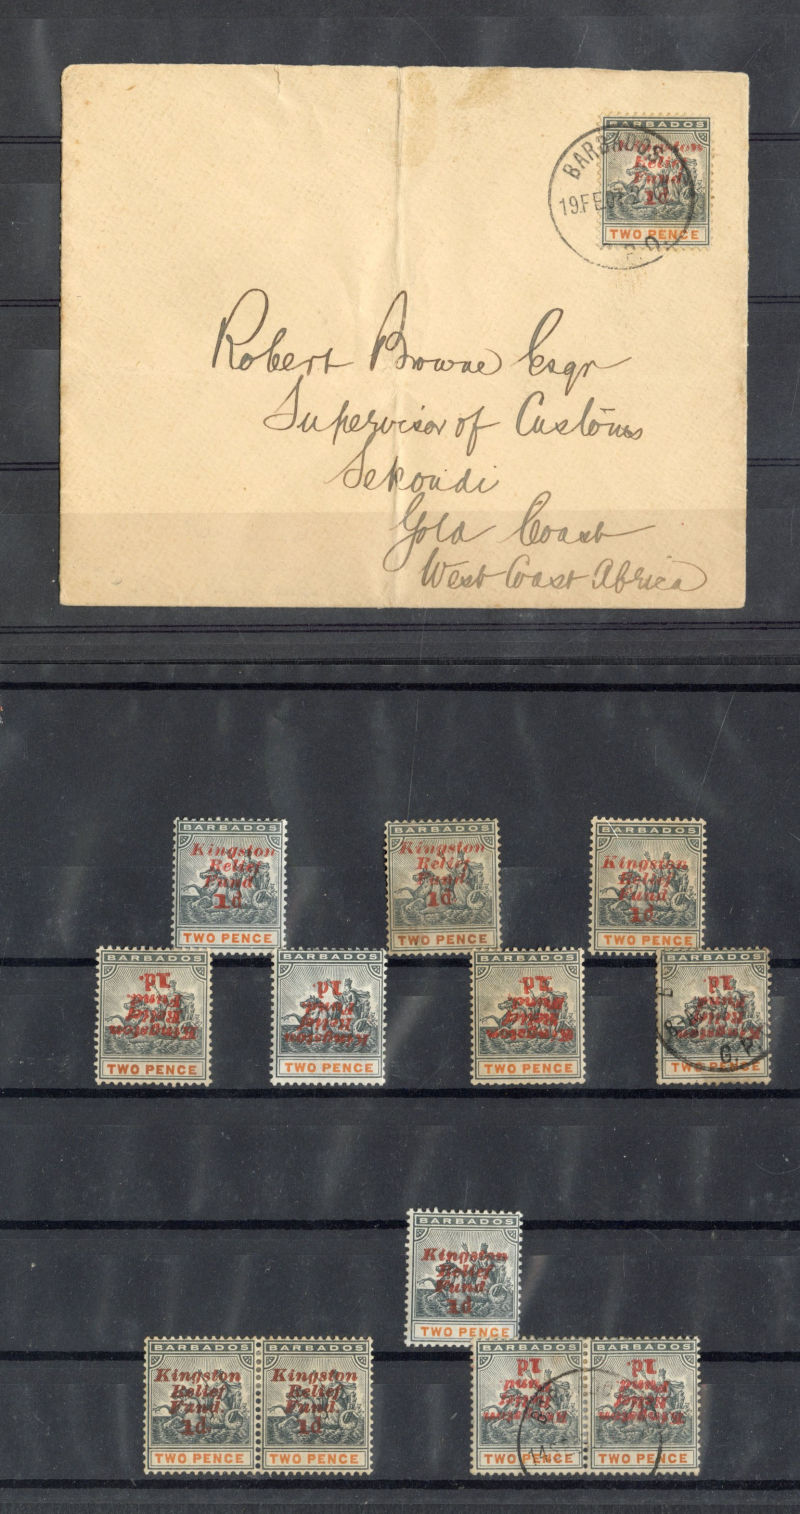 BARBADOS
Kingston
Relief
Fund
1d
TWO PENCE
BARBADOS
19 FE 07
G.P.O.
Robert Browne Esqr
Supervisor of Customs
Sekondi
Gold Coast
West Coast Africa
BARBADOS
Kingston
Relief
Fund
1d
TWO PENCE
BARBADOS
Kingston
Relief
Fund
1d
TWO PENCE
BARBADOS
Kingston
Relief
Fund
1d
TWO PENCE
BARBADOS
Kingston
Relief
Fund
1d.
TWO PENCE
BARBADOS
Kingston
Relief
Fund
1d
TWO PENCE
BARBADOS
Kingston
Relief
Fund
1d
TWO PENCE
BARBADOS
Kingston
Relief
Fund
1d
TWO PENCE
G.P.
BARBADOS
Kingston
Relief
Fund
1d
TWO PENCE
BARBADOS
Kingston
Relief
Fund
1d
TWO PENCE
BARBADOS
Kingston
Relief
Fund
1d
TWO PENCE
BARBADOS
Kingston
Relief
Fund
1d
TWO PENCE
BARBADOS
Kingston
Relief
Fund
1d.
TWO PENCE